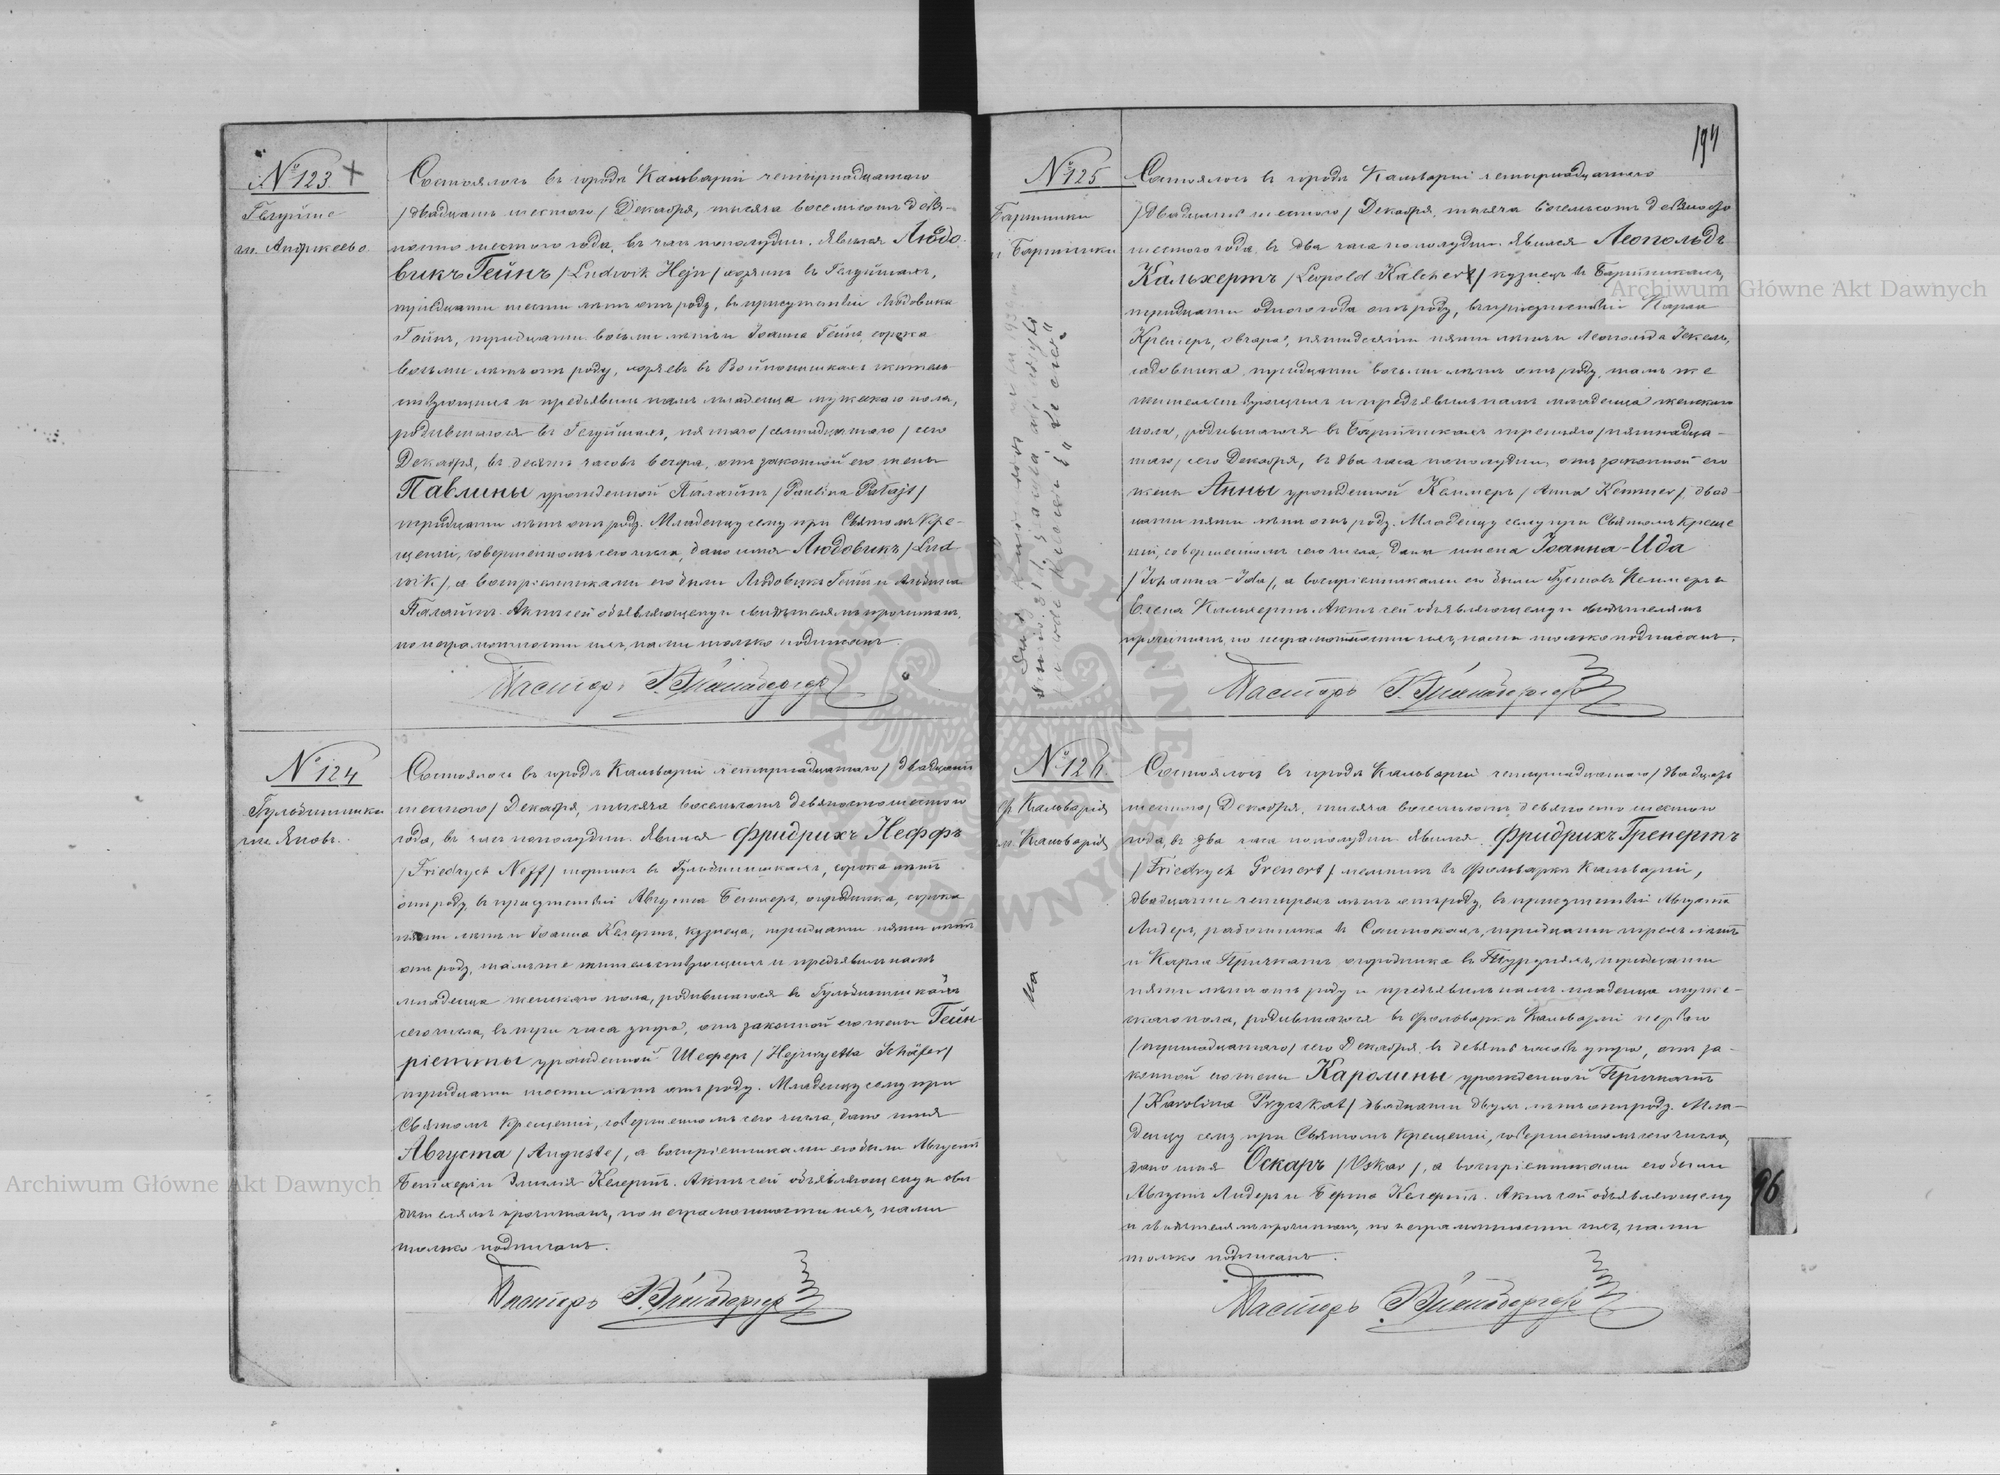 № 123
Гегуйше
Состоялось въ городѣ Кальваріи четырнадцатаго
/двадцать шестого/ Декабря, тысяча восемьсотъ девя-
носто шестого года, въ часъ пополудни. Явился Людо-
викъ Гейнъ /Ludwik Hejn/ въ Гегуйшахъ,
тридцати шести лѣтъ отъ роду, въ присутствіи Людовика
Гейнъ, тридцати восьми лѣтъ и Іоанна Гейнъ, сорока
восьми лѣтъ отъ роду, житель-
ствующихъ и предъявилъ намъ младенца мужескаго пола,
родившагося въ Гегуйшахъ, пятаго /семнадцатаго/ сего
Декабря, въ десять часовъ вечера, отъ законной его жены
Павлины урожденной Палайтъ /Paulina Palajt/
тридцати лѣтъ отъ роду. Младенцу сему при Святомъ Кре-
щеніи, совершенномъ сего числа, дано имя Людовикъ /Lud
wik/, а воспріемниками его были Людовикъ Гейнъ и
Палайтъ. Актъ сей объявляющему и свидѣтелямъ прочитанъ,
по неграмотности ихъ, нами только подписанъ.
Пасторъ
№ 124
Гульбинишки
Состоялось въ городѣ Кальваріи четырнадцатаго /двадцать
шестого/ Декабря, тысяча восемьсотъ девяносто шестого
года, въ часъ пополудни. Явился Фридрихъ Неффъ
/Friedrych Neff/ въ Гульбинишкахъ, сорока лѣтъ
отъ роду, въ присутствіи Августа огродника, сорока
пяти лѣтъ и Іоанна Кегертъ, кузнеца, тридцати пяти лѣтъ
отъ роду, тамъ же жительствующихъ и предъявилъ намъ
младенца женскаго пола, родившагося въ Гульбинишкахъ
сего числа, въ три часа утра, отъ законной его жены Гейн-
ріетты урожденной Шеферъ /Hejnryetta Schäfer/
тридцати шести лѣтъ отъ роду. Младенцу сему при
Святомъ Крещеніи, совершенномъ сего числа, дано имя
Августа /Auguste/, а воспріемниками его были Августъ
и Эмилія Кегертъ. Актъ сей объявляющему и сви-
дѣтелямъ прочитанъ, по неграмотности ихъ, нами
только подписанъ.
Пасторъ
194
№ 125
Бартники
Бартники
Состоялось въ городѣ Кальваріи четырнадцатаго
/двадцать шестого/ Декабря, тысяча восемьсотъ девяносто
шестого года, въ два часа пополудни. Явился Леопольдъ
Кальхертъ /Leopold Kalchert/ кузнецъ въ Бартникахъ,
тридцати одного года отъ роду, въ присутствіи Карла
овчаря, пятидесяти пяти лѣтъ и Леопольда
садовника, тридцати восьми лѣтъ отъ роду, тамъ же
жительствующихъ и предъявилъ намъ младенца женскаго
пола, родившагося въ Бартникахъ третьяго /пятнадца-
таго/ сего Декабря, въ два часа пополудни, отъ законной его
жены Анны урожденной Кеммеръ /Anna Kemmer/ двад-
цати пяти лѣтъ отъ роду. Младенцу сему при Святомъ Креще
ніи, совершенномъ сего числа, даны имена Іоанна-Ида
/Johanna-Ida/, а воспріемниками его были Густавъ Кеммеръ и
Елена Кальхертъ. Актъ сей объявляющему и свидѣтелямъ
прочитанъ, по неграмотности ихъ, нами только подписанъ.
Пасторъ
№ 126
ф. Кальварія
Кальварія
Состоялось въ городѣ Кальваріи четырнадцатаго /двадцать
шестого/ Декабря, тысяча восемьсотъ девяносто шестого
года, въ два часа пополудни. Явился Фридрихъ Гренертъ
/Friedrych Grenert/ въ фольваркѣ Кальваріи,
двадцати четырехъ лѣтъ отъ роду, въ присутствіи Августа
Лидеръ, работника въ тридцати трехъ лѣтъ
и Карла Причкатъ огородника въ тридцати
пяти лѣтъ отъ роду и предъявилъ намъ младенца муже-
скаго пола, родившагося въ фольваркѣ Кальваріи перваго
/тринадцатаго/ сего Декабря, въ девять часовъ утра, отъ за-
конной его жены Каролины урожденной Причкатъ
/Karolina Pryczkat/ двадцати двухъ лѣтъ отъ роду. Мла-
денцу сему при Святомъ Крещеніи, совершенномъ сего числа,
дано имя Оскаръ /Oskar/, а воспріемниками его были
Августъ Лидеръ и Берта Кегертъ. Актъ сей объявляющему
и свидѣтелямъ прочитанъ, по неграмотности ихъ, нами
только подписанъ.
Пасторъ
96
Archiwum Główne Akt Dawnych
Archiwum Główne Akt Dawnych
ARCHIWUM GŁÓWNE AKT DAWNYCH